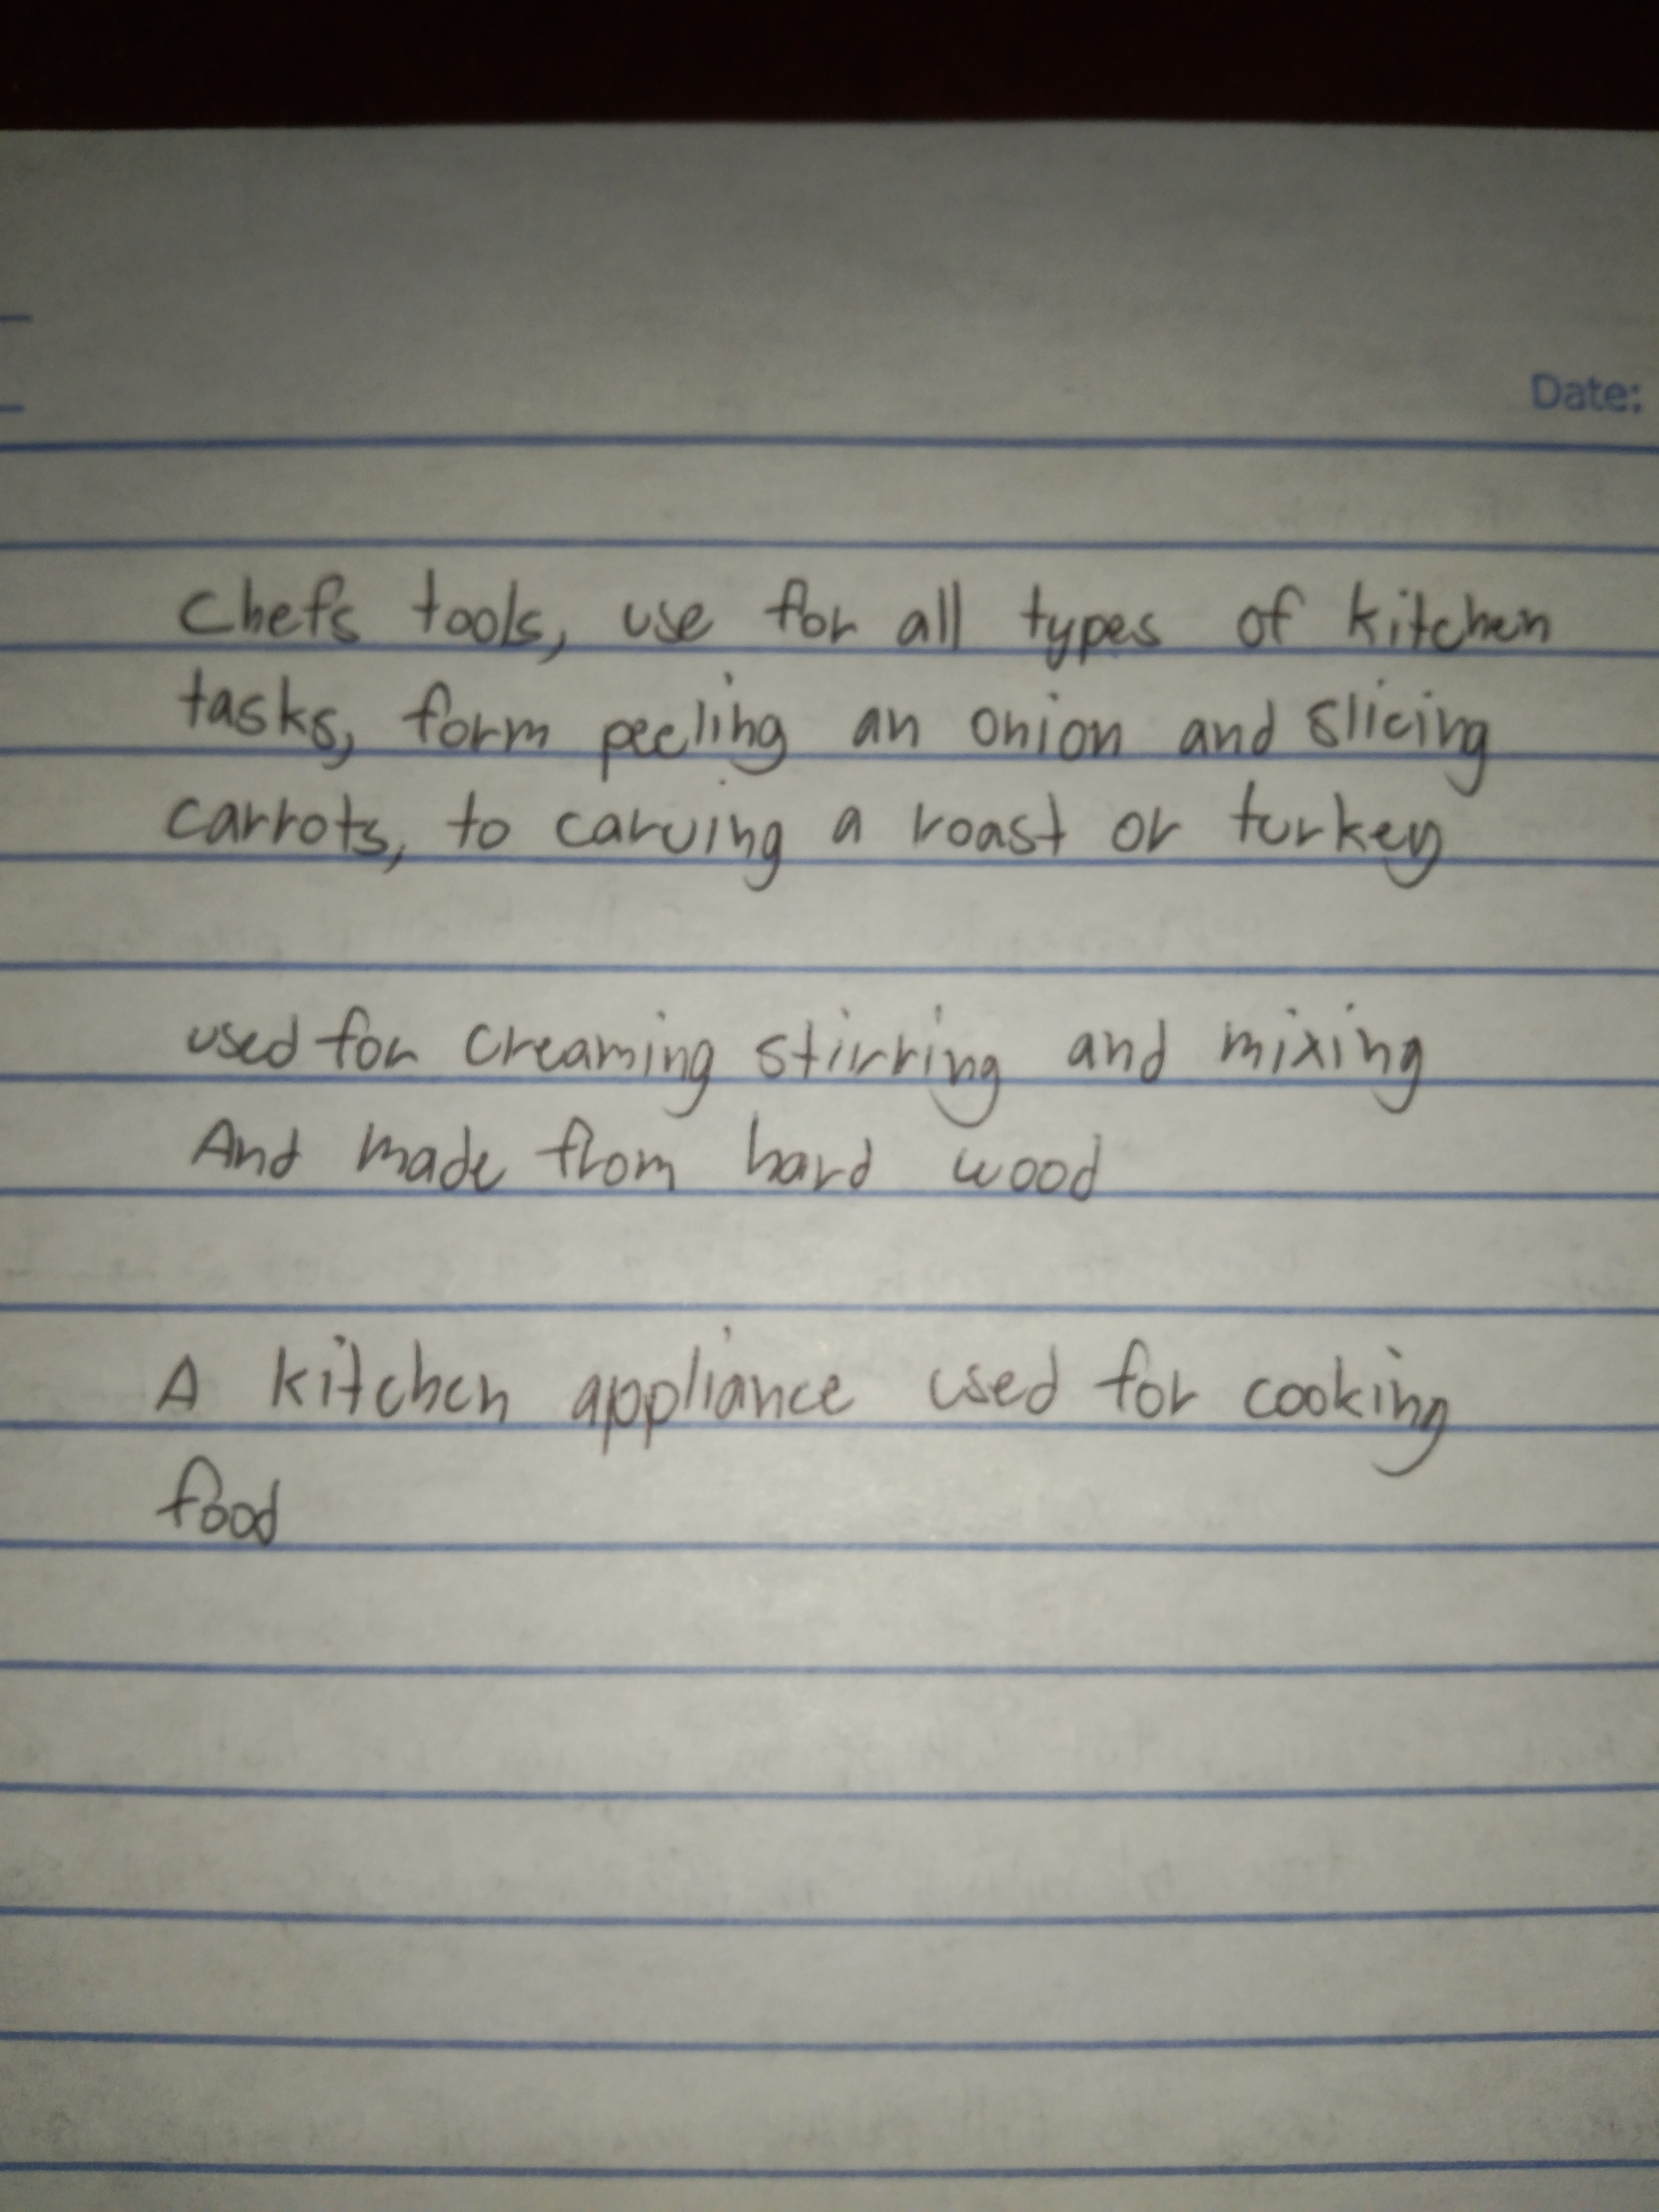 Date:
Chefs tools, use for all types of kitchen
tasks, form peeling an onion and slicing
carrots, to carving a roast or turkey
used for creaming stirring and mixing
And made from hard wood
A kitchen appliance used for cooking
food